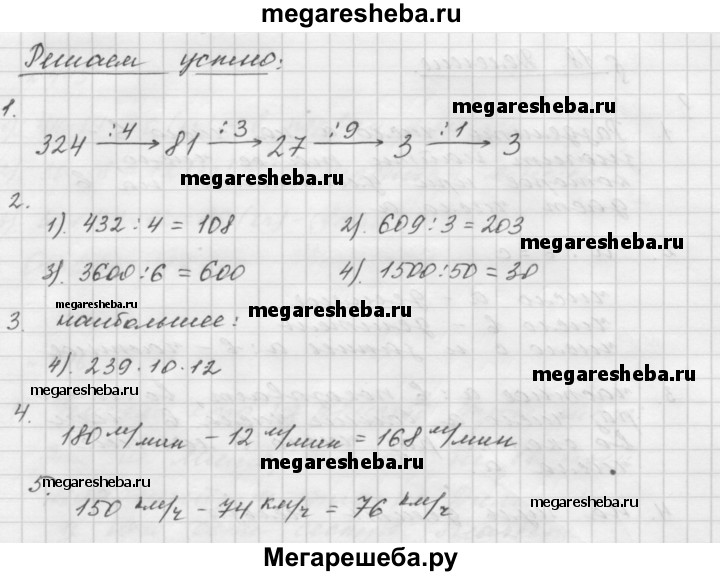 megaresheba.ru
Решаем устно:
1.
megaresheba.ru
324 :4 → 81 :3 → 27 :9 → 3 :1 → 3
megaresheba.ru
2.
1). 432 : 4 = 108 2). 609 : 3 = 203
megaresheba.ru
3). 3600 : 6 = 600 4). 1500 : 50 = 30
megaresheba.ru megaresheba.ru
3. наибольшее:
4). 239 · 10 · 12
megaresheba.ru megaresheba.ru
4.
180 м/мин – 12 м/мин = 168 м/мин
megaresheba.ru
5.
megaresheba.ru
150 км/ч – 74 км/ч = 76 км/ч
megaresheba.ru
Мегарешеба.ру